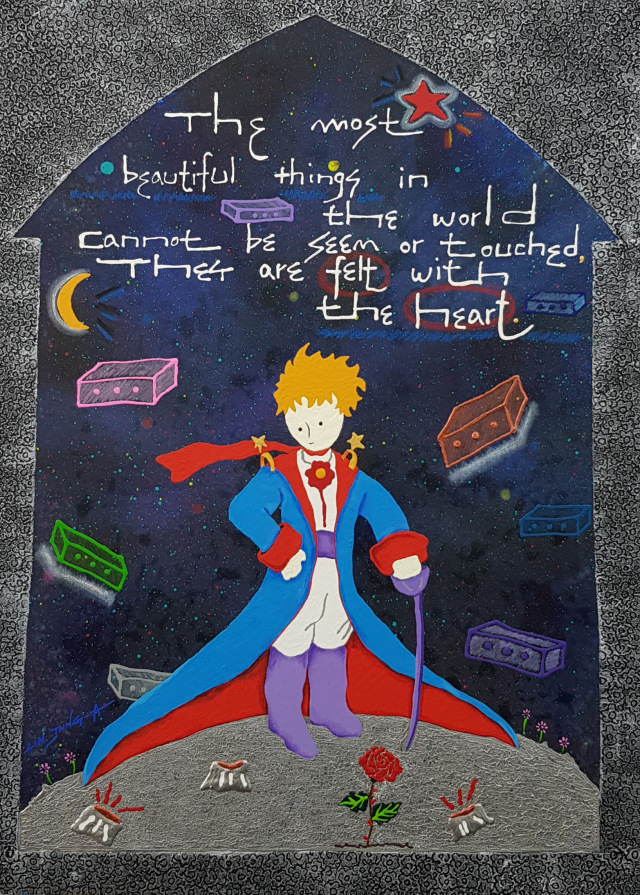 The most
beautiful things in
the world
cannot be seen or touched,
They are felt with
the heart.
LIM JUNG-A